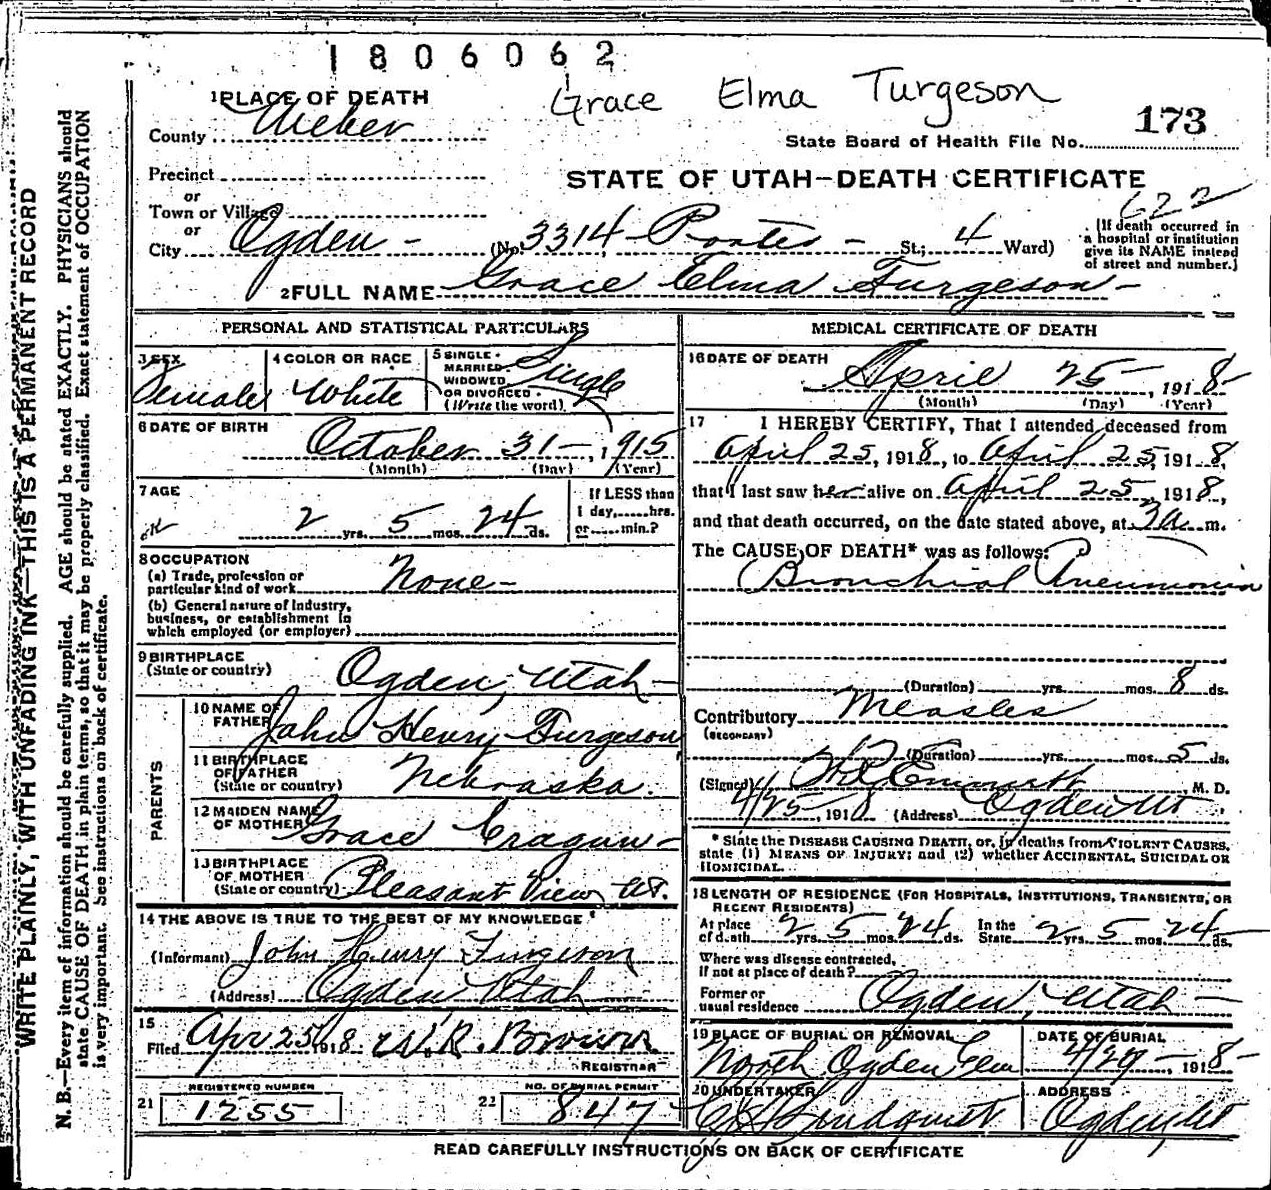 1806062
Grace Elma Turgeson
1 PLACE OF DEATH
County Weber
173
State Board of Health File No.
Precinct
or
STATE OF UTAH—DEATH CERTIFICATE
Town or Village
or
622
City Ogden - (No. 3314 Porter - St.; 4 Ward)
[If death occurred in
a hospital or institution
give its NAME instead
of street and number.]
2 FULL NAME Grace Elma Turgeson -
PERSONAL AND STATISTICAL PARTICULARS
3 SEX Female
4 COLOR OR RACE White
5 SINGLE
MARRIED
WIDOWED
OR DIVORCED
(Write the word) Single
6 DATE OF BIRTH
October 31 -, 1915
(Month) (Day) (Year)
7 AGE
2 yrs. 5 mos. 24 ds.
If LESS than
1 day, hrs.
or min.?
8 OCCUPATION
(a) Trade, profession or
particular kind of work None -
(b) General nature of Industry,
business, or establishment in
which employed (or employer)
9 BIRTHPLACE
(State or country) Ogden, Utah -
PARENTS
10 NAME OF
FATHER John Henry Turgeson
11 BIRTHPLACE
OF FATHER
(State or country) Nebraska.
12 MAIDEN NAME
OF MOTHER Grace Cragun -
13 BIRTHPLACE
OF MOTHER
(State or country) Pleasant View Ut.
14 THE ABOVE IS TRUE TO THE BEST OF MY KNOWLEDGE
(Informant) John Henry Turgeson
(Address) Ogden Utah
15
Filed Apr 25 1918. W.R. Brown
REGISTRAR
REGISTERED NUMBER
21 1255
NO. OF BURIAL PERMIT
22 847
MEDICAL CERTIFICATE OF DEATH
16 DATE OF DEATH
April 25 -, 1918 -
(Month) (Day) (Year)
17 I HEREBY CERTIFY, That I attended deceased from
April 25, 1918, to April 25, 1918,
that I last saw her alive on April 25, 1918,
and that death occurred, on the date stated above, at 3a m.
The CAUSE OF DEATH* was as follows:
Bronchial Pneumonia
(Duration) yrs. mos. 8 ds.
Contributory Measles
(SECONDARY)
(Duration) yrs. mos. 5 ds.
(Signed) Emmett, M. D.
4/25, 1918 (Address) Ogden Ut
* State the DISEASE CAUSING DEATH, or, in deaths from VIOLENT CAUSES,
state (1) MEANS OF INJURY; and (2) whether ACCIDENTAL, SUICIDAL OR
HOMICIDAL.
18 LENGTH OF RESIDENCE (FOR HOSPITALS, INSTITUTIONS, TRANSIENTS, OR
RECENT RESIDENTS)
At place
of death 2 yrs. 5 mos. 24 ds. In the
State 2 yrs. 5 mos. 24 ds.
Where was disease contracted,
If not at place of death?
Former or
usual residence Ogden, Utah -
19 PLACE OF BURIAL OR REMOVAL
North Ogden Cem
DATE OF BURIAL
4/27 -, 1918 -
20 UNDERTAKER
Lindquist
ADDRESS
Ogden, Ut
READ CAREFULLY INSTRUCTIONS ON BACK OF CERTIFICATE
WRITE PLAINLY, WITH UNFADING INK—THIS IS A PERMANENT RECORD
N. B.—Every item of information should be carefully supplied. AGE should be stated EXACTLY. PHYSICIANS should
state CAUSE OF DEATH in plain terms, so that it may be properly classified. Exact statement of OCCUPATION
is very important. See instructions on back of certificate.